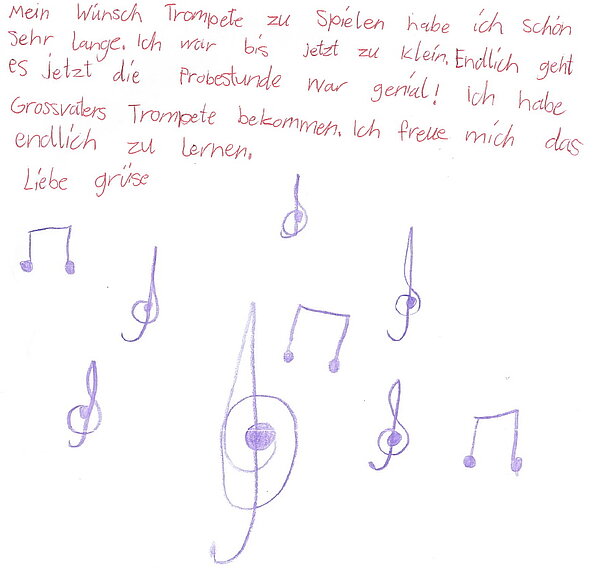 Mein Wunsch Trompete zu Spielen habe ich schön
Sehr lange. Ich war bis jetzt zu klein. Endlich geht
es jetzt die Probestunde war genial! ich habe
Grossvaters Trompete bekommen. Ich freue mich das
endlich zu lernen.
Liebe grüse